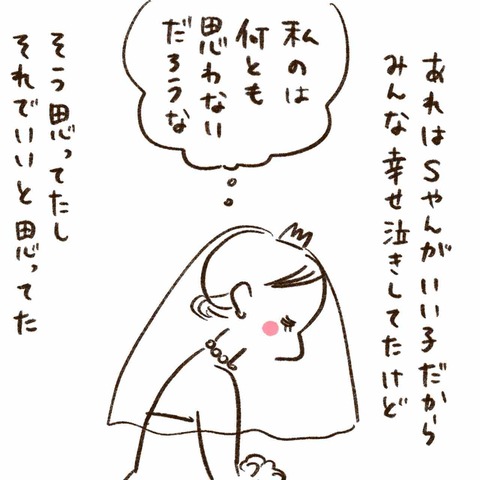 あれはSやんがいい子だから
みんな幸せ泣きしてたけど
私のは
何とも
思わない
だろうな
そう思ってたし
それでいいと思ってた